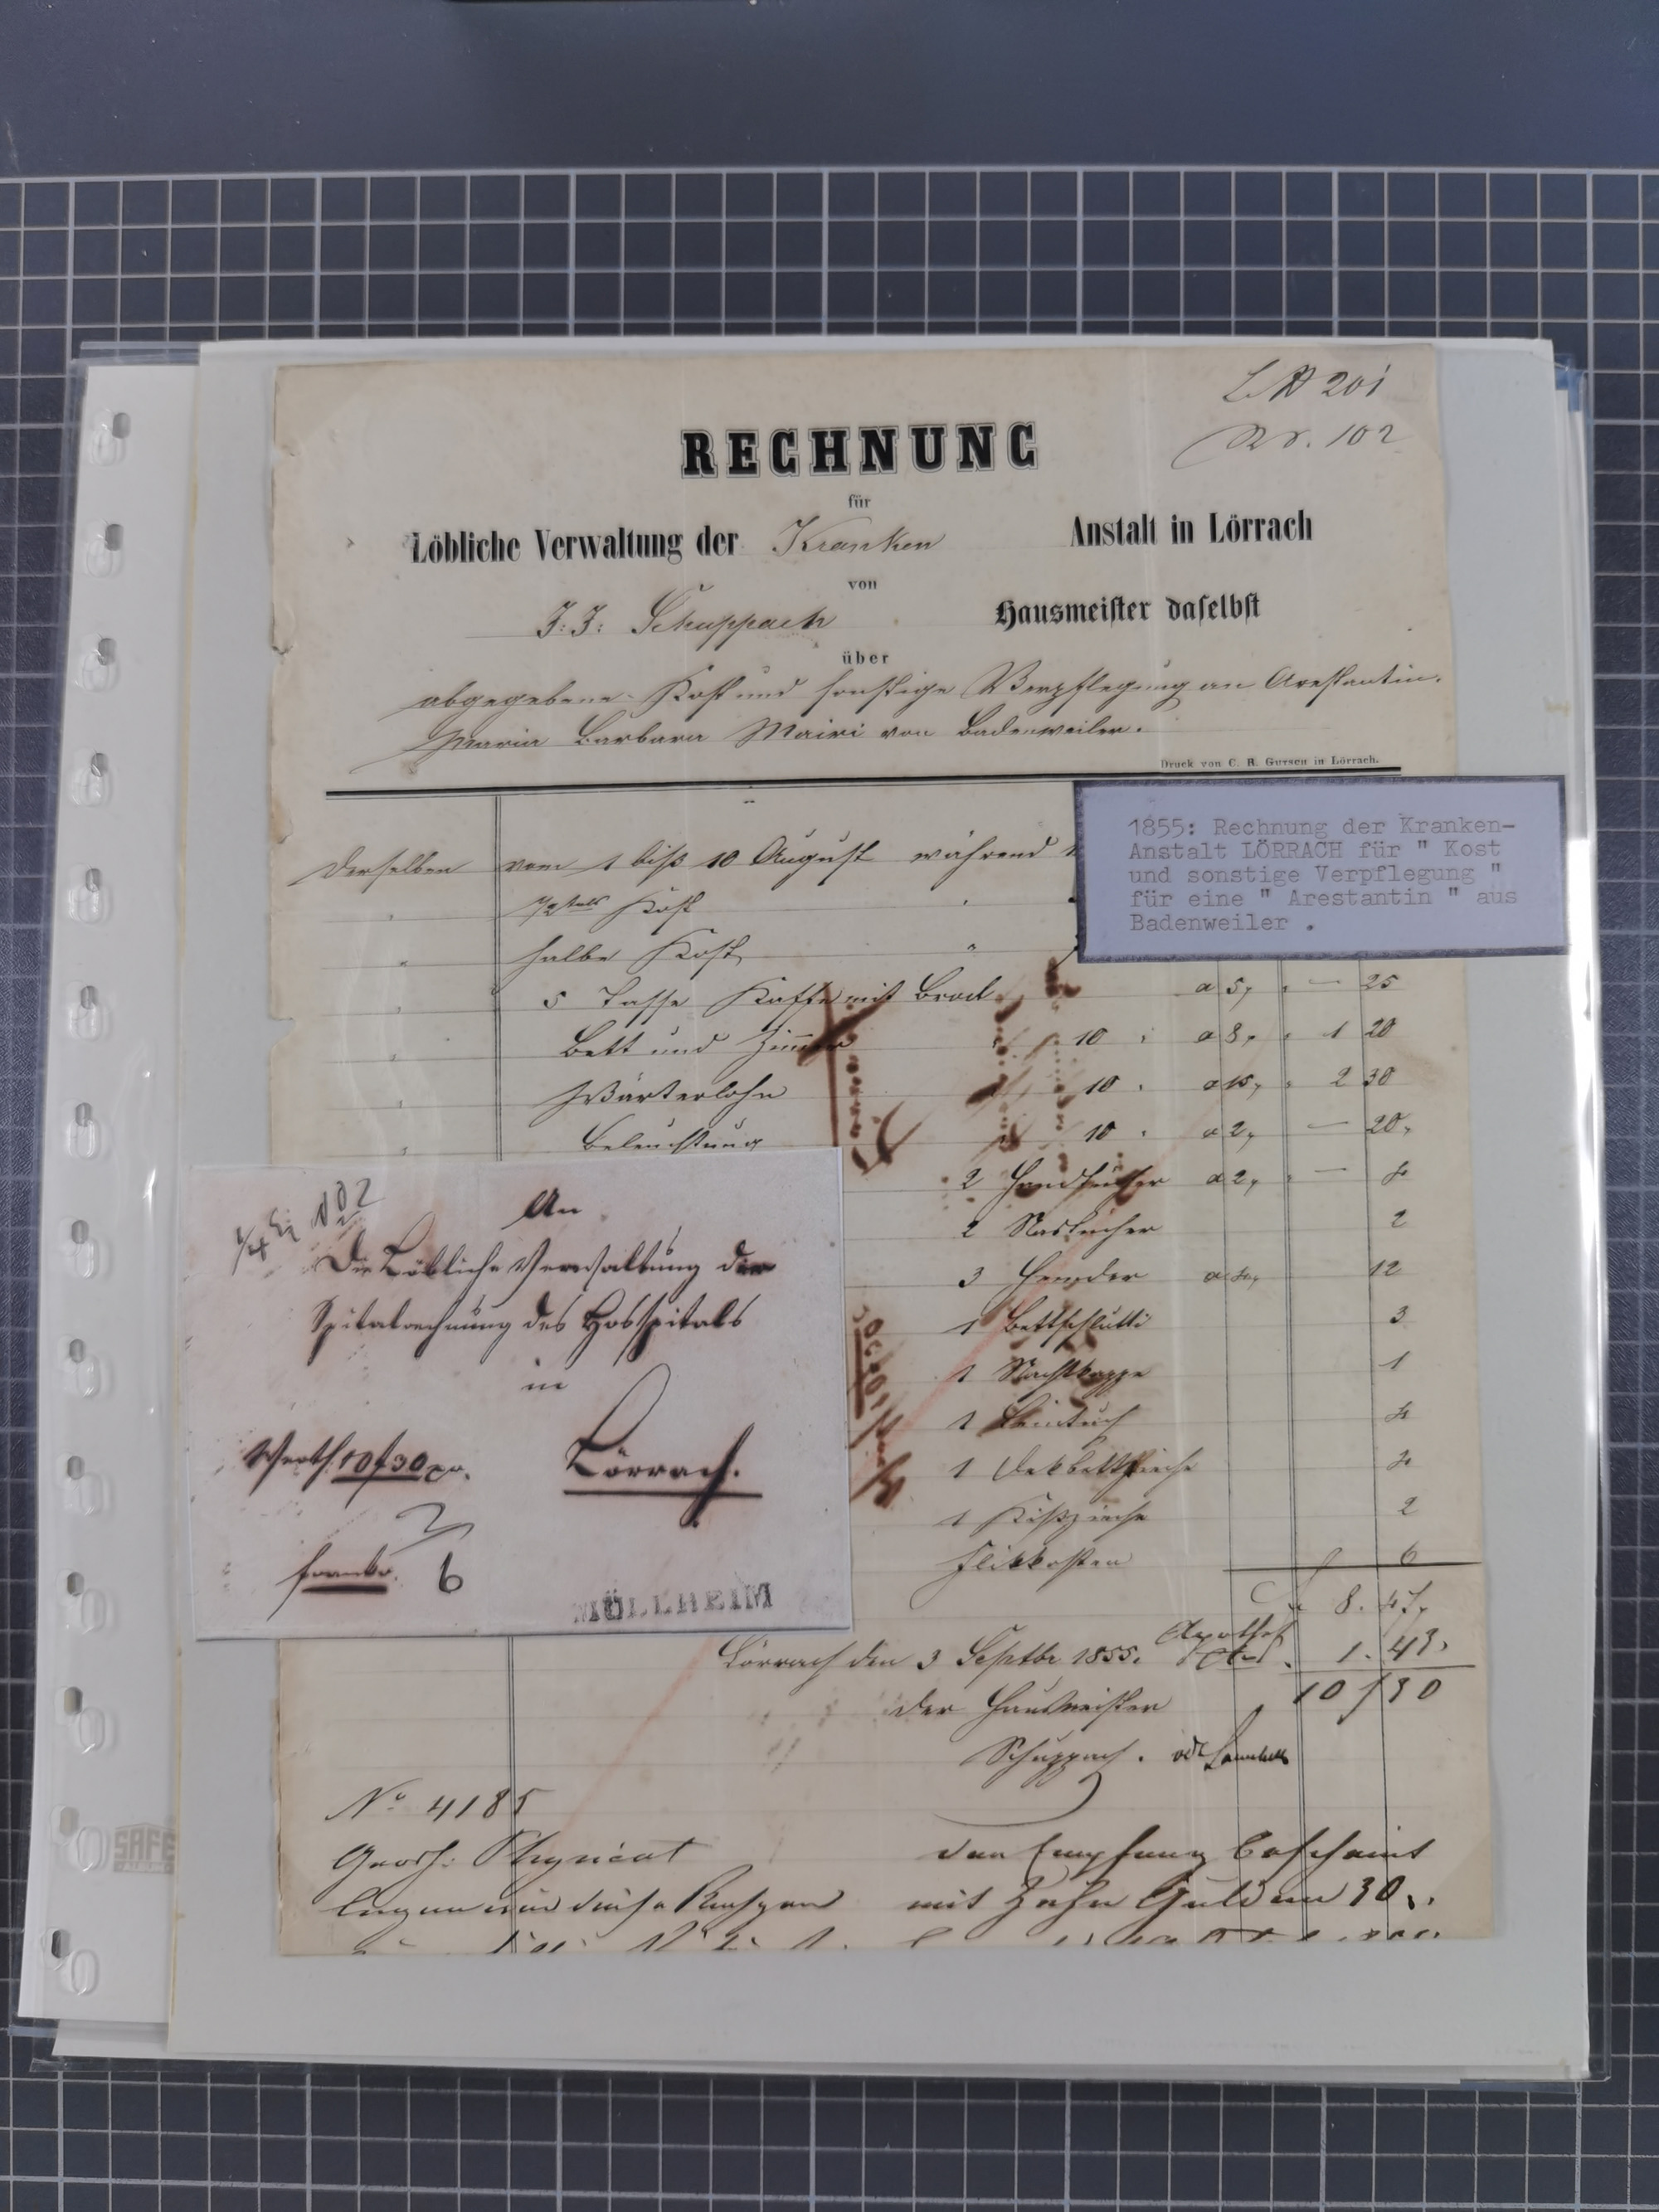 L A 201
Nr. 102
RECHNUNG
für
Löbliche Verwaltung der Kranken Anstalt in Lörrach
von
J: J: Schuppach Hausmeister daselbst
über
abgegebene Kost und sonstige Verpflegung an Arestantin.
Maria Barbara Mairi von Badenweiler.
Druck von C. R. Gutsch in Lörrach.
1855: Rechnung der Kranken-
Anstalt LÖRRACH für " Kost
und sonstige Verpflegung "
für eine " Arestantin " aus
Badenweiler .
Derselben vom 1 biß 10 August während
Kost
halbe Kost
5 Tasse Kaffe mit Brod a 5, — 25
Bett und Zimmer 10 a 8, 1 20
Wärterlohn 10 a 15, 2 30
Beleuchtung 10 a 2, — 20,
2 Handtücher a 2, — 4
2 Nastücher 2
3 Hemder a 4, 12
1 Bettschlutti 3
1 Nachtkappe 1
1 Leintuch 4
1 Dekbettzieche 4
1 Kißzieche 2
Flikkosten 6
8. 47,
Lörrach den 3 Septbr 1855. 1. 43,
10 f 30
Der Hausmeister
Schuppach.
No 4185
Grosh: Physicat
den Empfang bescheint
mit Zehn Gulden 30
102
An
Die Löbliche Verwaltung der
Spitalrechnung des Hosspitals
in
Lörrach.
Werth 10 f 30 xr.
franko. 6
MÜLLHEIM
SAFE